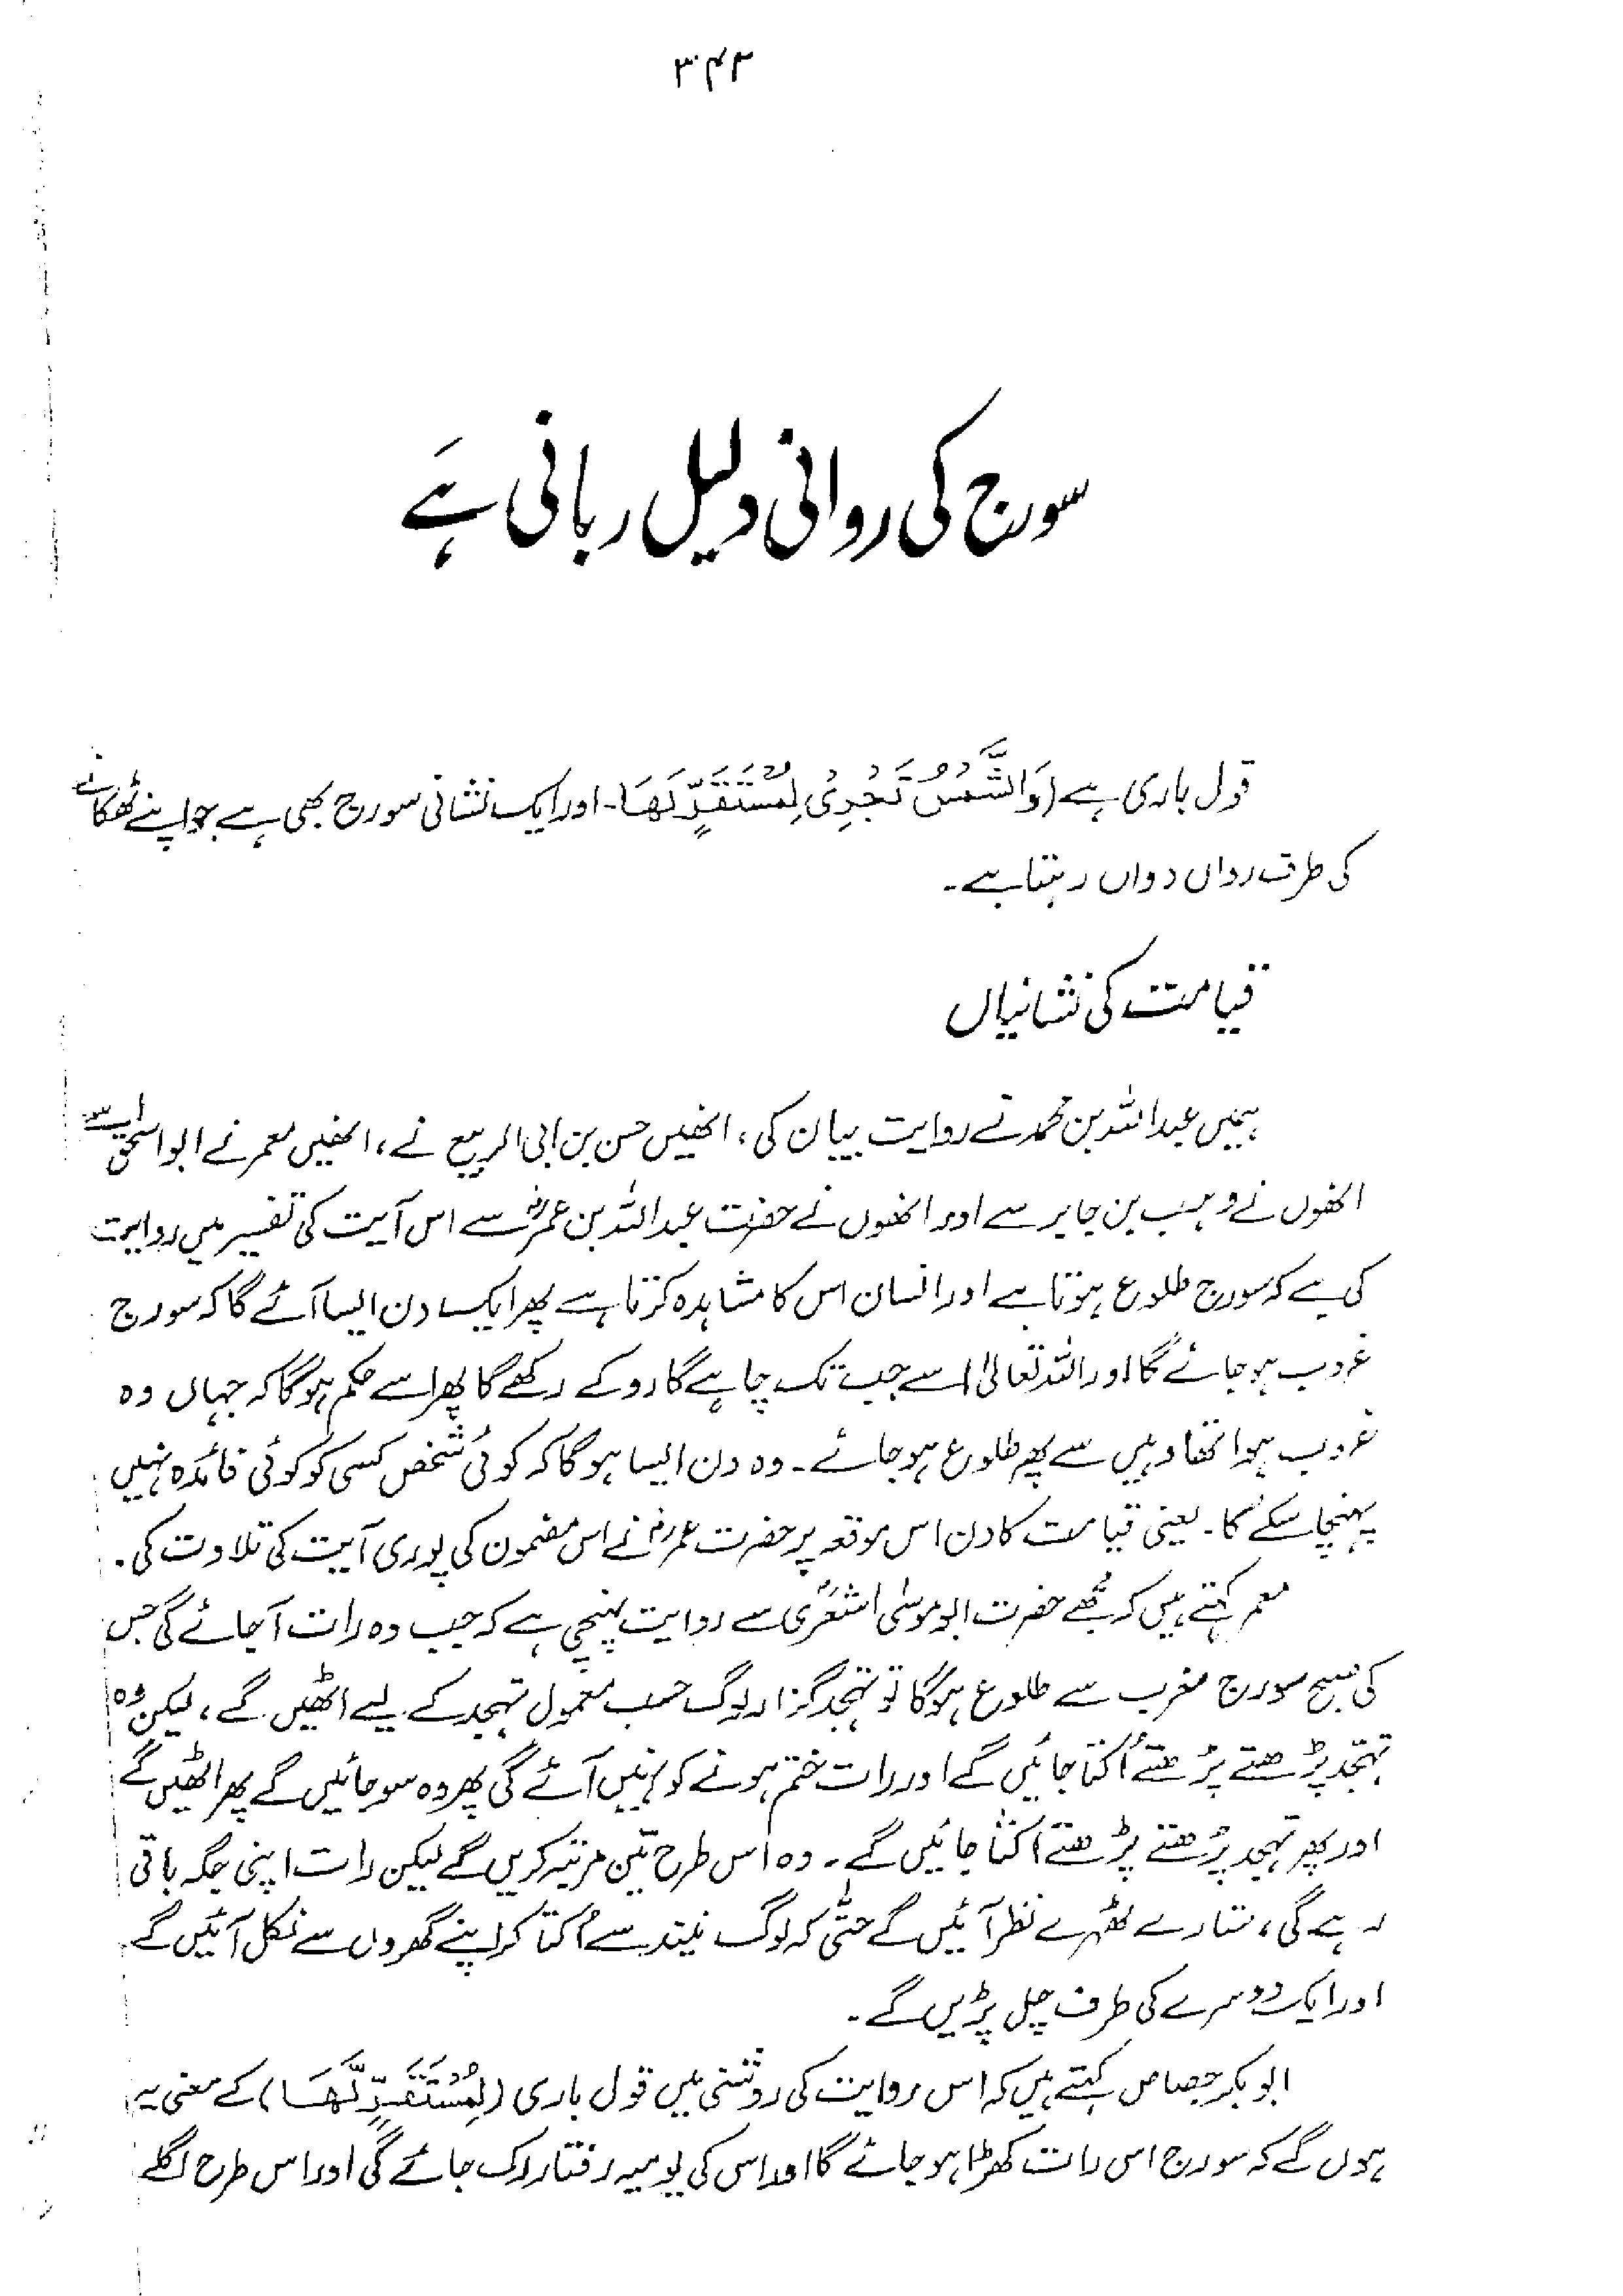 ۳۴۲
سورج کی روانی دلیل ربانی ہے
قول باری ہے (وَالشَّمْسُ تَجْرِیْ لِمُسْتَقَرٍّ لَّهَا۔ اور ایک نشانی سورج بھی ہے جو اپنے ٹھکانے
کی طرف رواں دواں رہتا ہے۔
قیامت کی نشانیاں
ہمیں عبداللہ بن محمد نے روایت بیان کی، انھیں حسن بن ابی الربیع نے، انھیں معمر نے ابو اسحٰق سے
انھوں نے وہب بن جابر سے اور انھوں نے حضرت عبداللہ بن عمرؓ سے اس آیت کی تفسیر میں روایت
کی ہے کہ سورج طلوع ہوتا ہے اور انسان اس کا مشاہدہ کرتا ہے پھر ایک دن ایسا آئے گا کہ سورج
غروب ہو جائے گا اور اللہ تعالیٰ اسے جب تک چاہے گا روکے رکھے گا پھر اسے حکم ہوگا کہ جہاں وہ
غروب ہوا تھا وہیں سے پھر طلوع ہو جائے۔ وہ دن ایسا ہوگا کہ کوئی شخص کسی کو کوئی فائدہ نہیں
پہنچا سکے گا۔ یعنی قیامت کا دن اس موقعہ پر حضرت عمرؓ نے اس مضمون کی پوری آیت کی تلاوت کی۔
معمر کہتے ہیں کہ مجھے حضرت ابو موسٰی اشعریؓ سے روایت پہنچی ہے کہ جب وہ رات آ جائے گی جس
کی صبح سورج مغرب سے طلوع ہوگا تو تہجد گزار لوگ حسب معمول تہجد کے لیے اٹھیں گے، لیکن وہ
تہجد پڑھتے پڑھتے اُکتا جائیں گے اور رات ختم ہونے کو نہیں آئے گی پھر وہ سو جائیں گے پھر اٹھیں گے
اور پھر تہجد پڑھتے پڑھتے اکتا جائیں گے۔ وہ اس طرح تین مرتبہ کریں گے لیکن رات اپنی جگہ باقی
رہے گی، ستارے ٹھہرے نظر آئیں گے حتّٰی کہ لوگ نیند سے اُکتا کر اپنے گھروں سے نکل آئیں گے
اور ایک دوسرے کی طرف چل پڑیں گے۔
ابو بکر جصاص کہتے ہیں کہ اس روایت کی روشنی میں قول باری (لِمُسْتَقَرٍّ لَّهَا) کے معنی یہ
ہوں گے کہ سورج اس رات کھڑا ہو جائے گا اور اس کی یومیہ رفتار رک جائے گی اور اس طرح اگلے